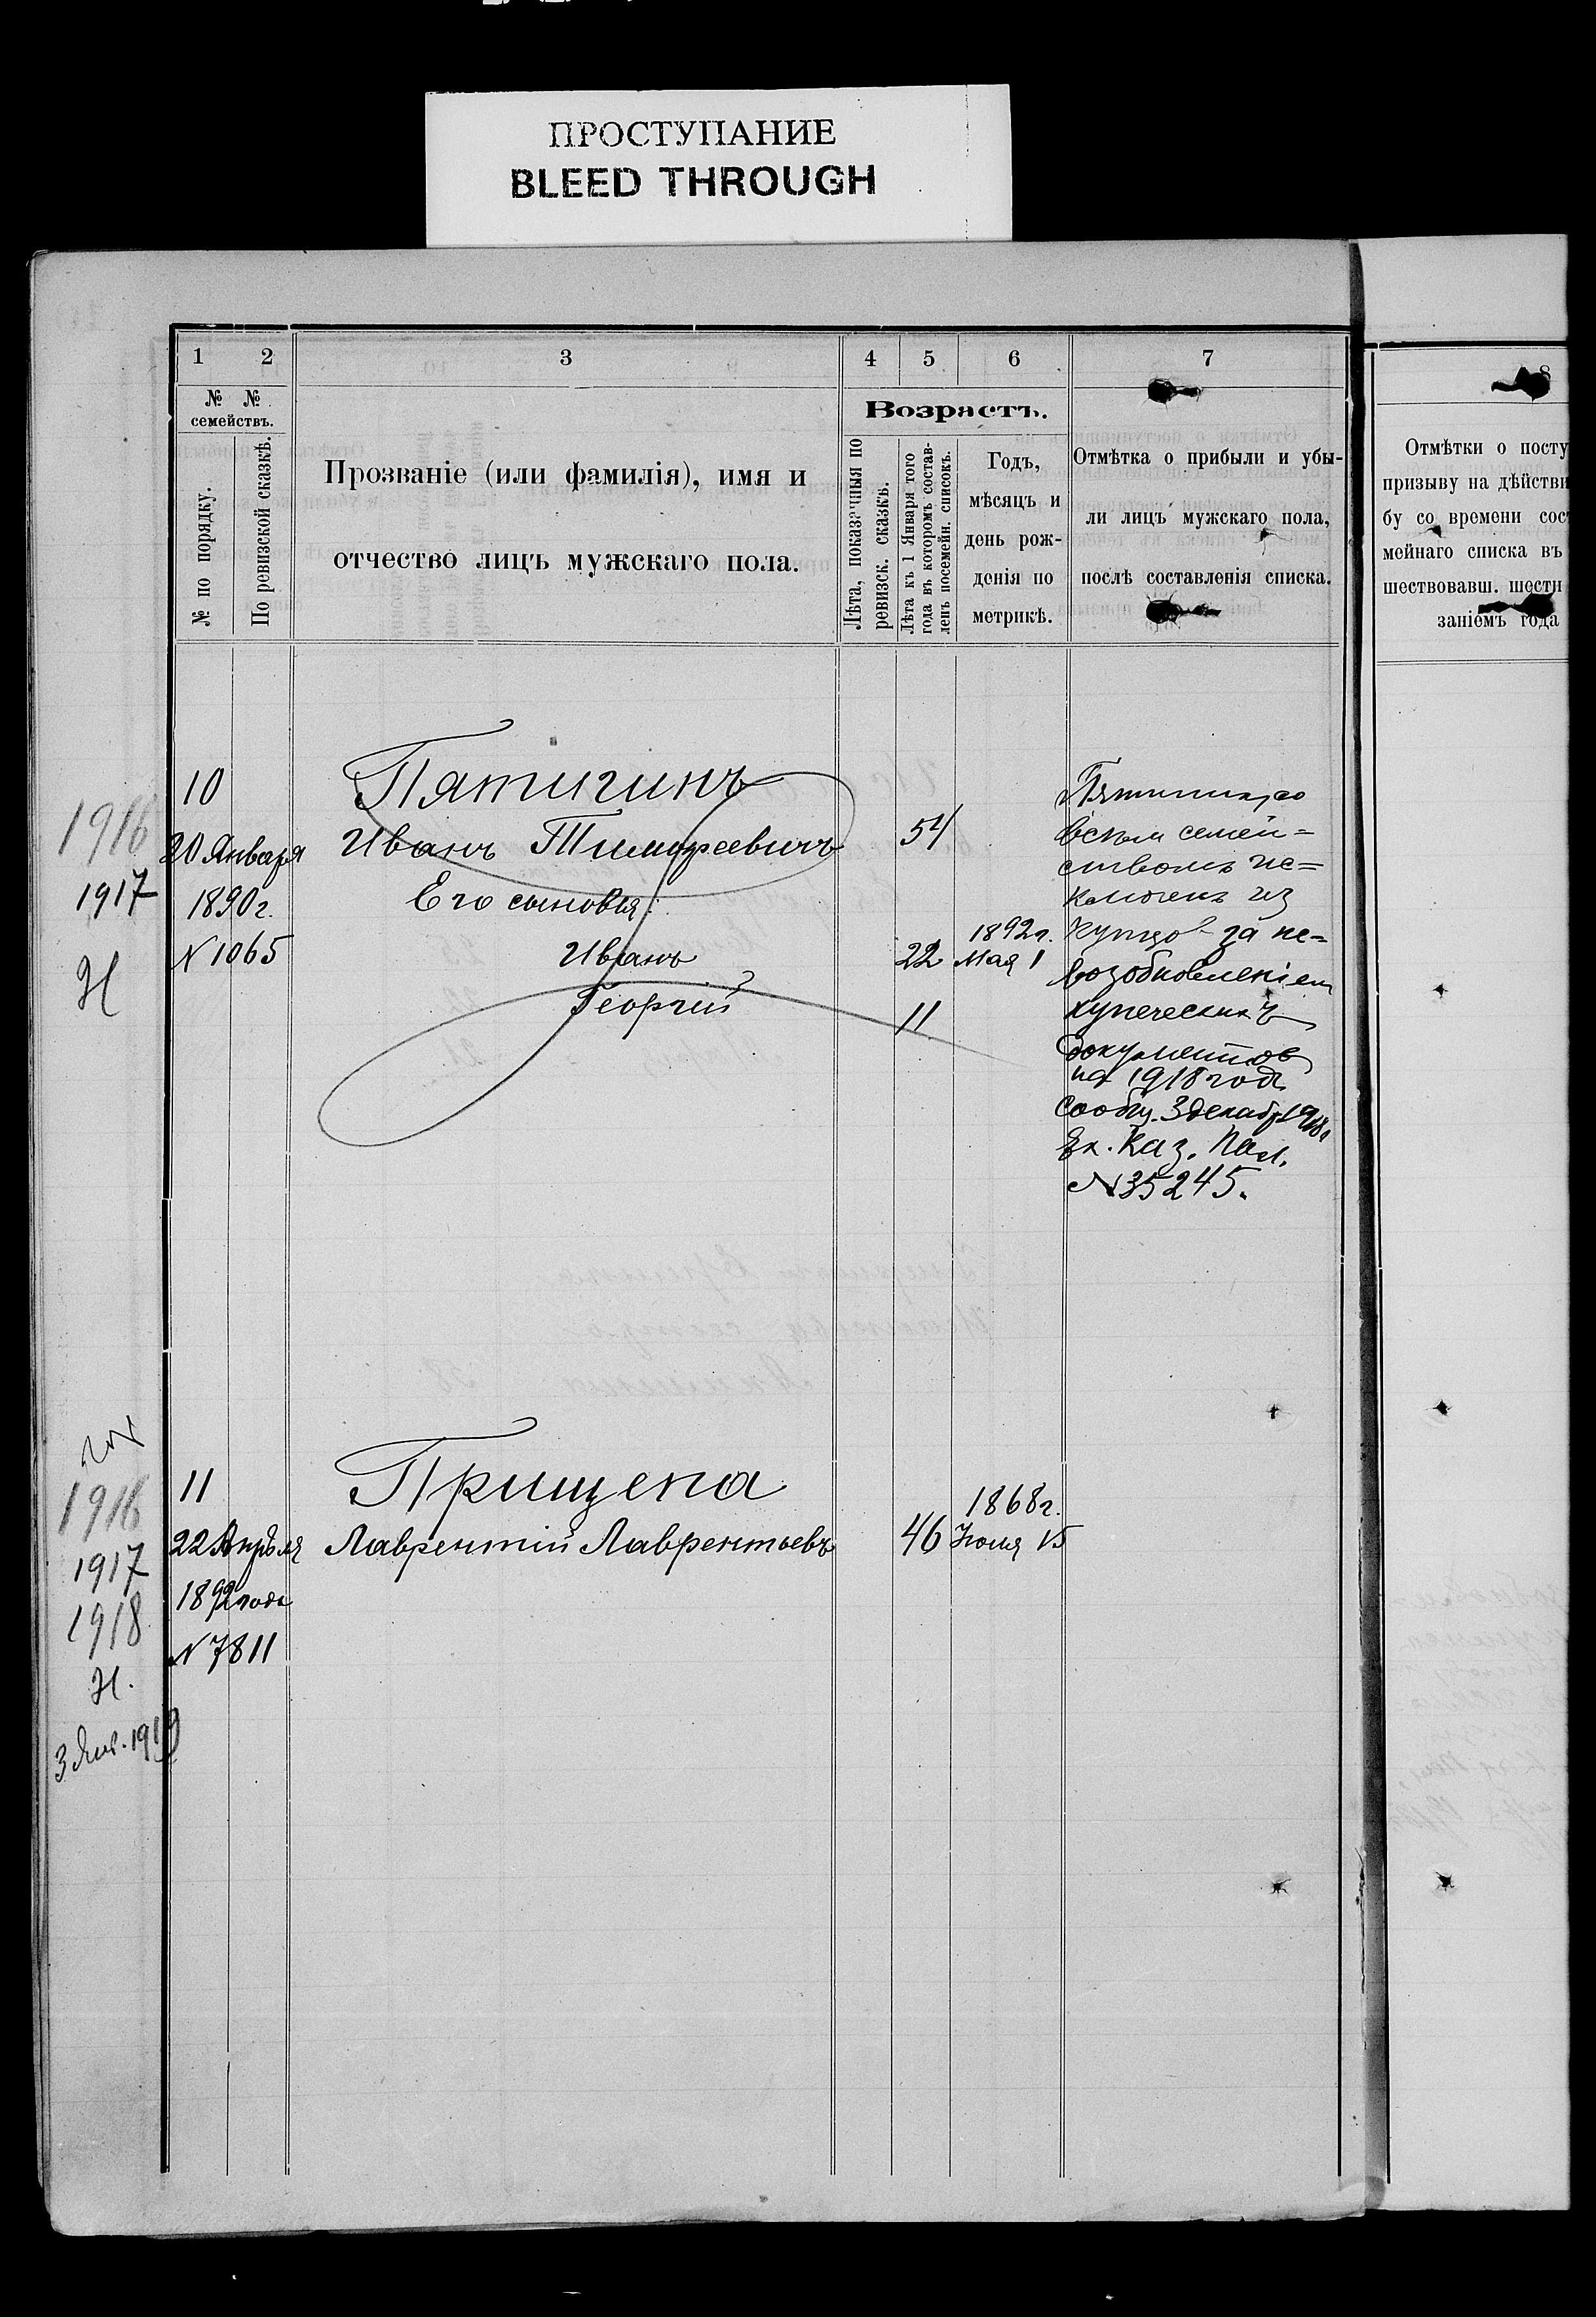 ПРОСТУПАНИЕ
BLEED THROUGH
1 2 3 4 5 6 7 8
№ №
семействъ.
№ по порядку.
По ревизской сказкѣ.
Прозваніе (или фамилія), имя и
отчество лицъ мужскаго пола.
Возрастъ.
Лѣта, показанныя по
ревизск. сказкѣ.
Лѣта къ 1 Января того
года въ которомъ состав-
ленъ посемейн. списокъ.
Годъ,
мѣсяцъ и
день рож-
денія по
метрикѣ.
Отмѣтка о прибыли и убы-
ли лицъ мужскаго пола,
послѣ составленія списка.
Отмѣтки о посту
призыву на дѣйстви
бу со времени сос
мейнаго списка въ
шествовавш. шести
заніемъ года
1916
1917
Н
10
20 Января
1890 г.
№ 1065
Пятигинъ
Иванъ Тимофеевичъ
Его сыновья:
Иванъ
Георгій
54
22
11
1892 г.
Мая 1
Пятигин, со
всѣм семей=
ством ис=
ключен из
купцов за не=
возобновленіем
купеческих
документов
на 1918 годъ
сообщ. 3 декабр 1918 г
Ек. Каз. Пал.
№ 35245.
1916
1917
1918
Н.
3 Янв. 1919
11
22 Апрѣля
1892 года
№ 7811
Прищепа
Лаврентій Лаврентьевъ
46
1868 г.
Іюля 15